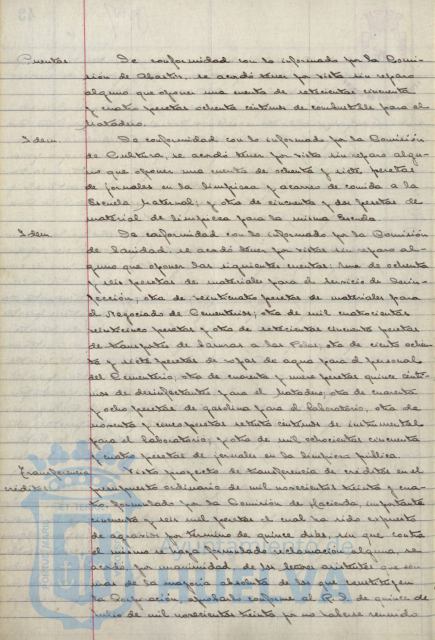 Cuentas. De conformidad con lo informado por la Comi-
sión de Abastos, se acordó tener por vista sin reparo
alguno que oponer una cuenta de setecientas cincuenta
y cuatro pesetas ochenta céntimos de combustible para el
Matadero.
Idem. De conformidad con lo informado por la Comisión
de Cultura, se acordó tener por vista sin reparo algu-
no que oponer una cuenta de ochenta y siete pesetas
de jornales en la limpieza y acarreo de comida a la
Escuela Maternal; y otra de cincuenta y dos pesetas de
material de limpieza para la misma Escuela.
Idem. De conformidad con lo informado por la Comisión
de Sanidad, se acordó tener por vistas sin reparo al-
guno que oponer las siguientes cuentas: Una de ochenta
y seis pesetas de materiales para el servicio de Desin-
fección; otra de veinticuatro pesetas de materiales para
el Negociado de Cementerios; otra de mil cuatrocientas
veinticinco pesetas y otra de setecientas cincuenta pesetas
de transportes de basuras a las; otra de ciento ochen-
ta y siete pesetas de ropas de agua para el personal
del Cementerio; otra de cuarenta y nueve pesetas quince cénti-
mos de desinfectantes para el Matadero; otra de cuarenta
y ocho pesetas de gasolina para el laboratorio; otra de
noventa y cinco pesetas setenta céntimos de instrumental
para el laboratorio; y otra de mil ochocientas cincuenta
y cuatro pesetas de jornales en la limpieza pública.
Transferencia Visto proyecto de transferencia de créditos en el
créditos. presupuesto ordinario de mil novecientos treinta y cua-
tro, formulado por la Comisión de Hacienda, importante
cincuenta y seis mil pesetas el cual ha sido expuesto
de agravios por término de quince días, sin que contra
el mismo se haya formulado reclamación alguna, se
acordó, por unanimidad de los señores asistentes que son
más de la mayoría absoluta de los que constituyen
la Corporación, aprobarlo conforme al R. D. de quince de
de mil novecientos treinta por no haberse reunido